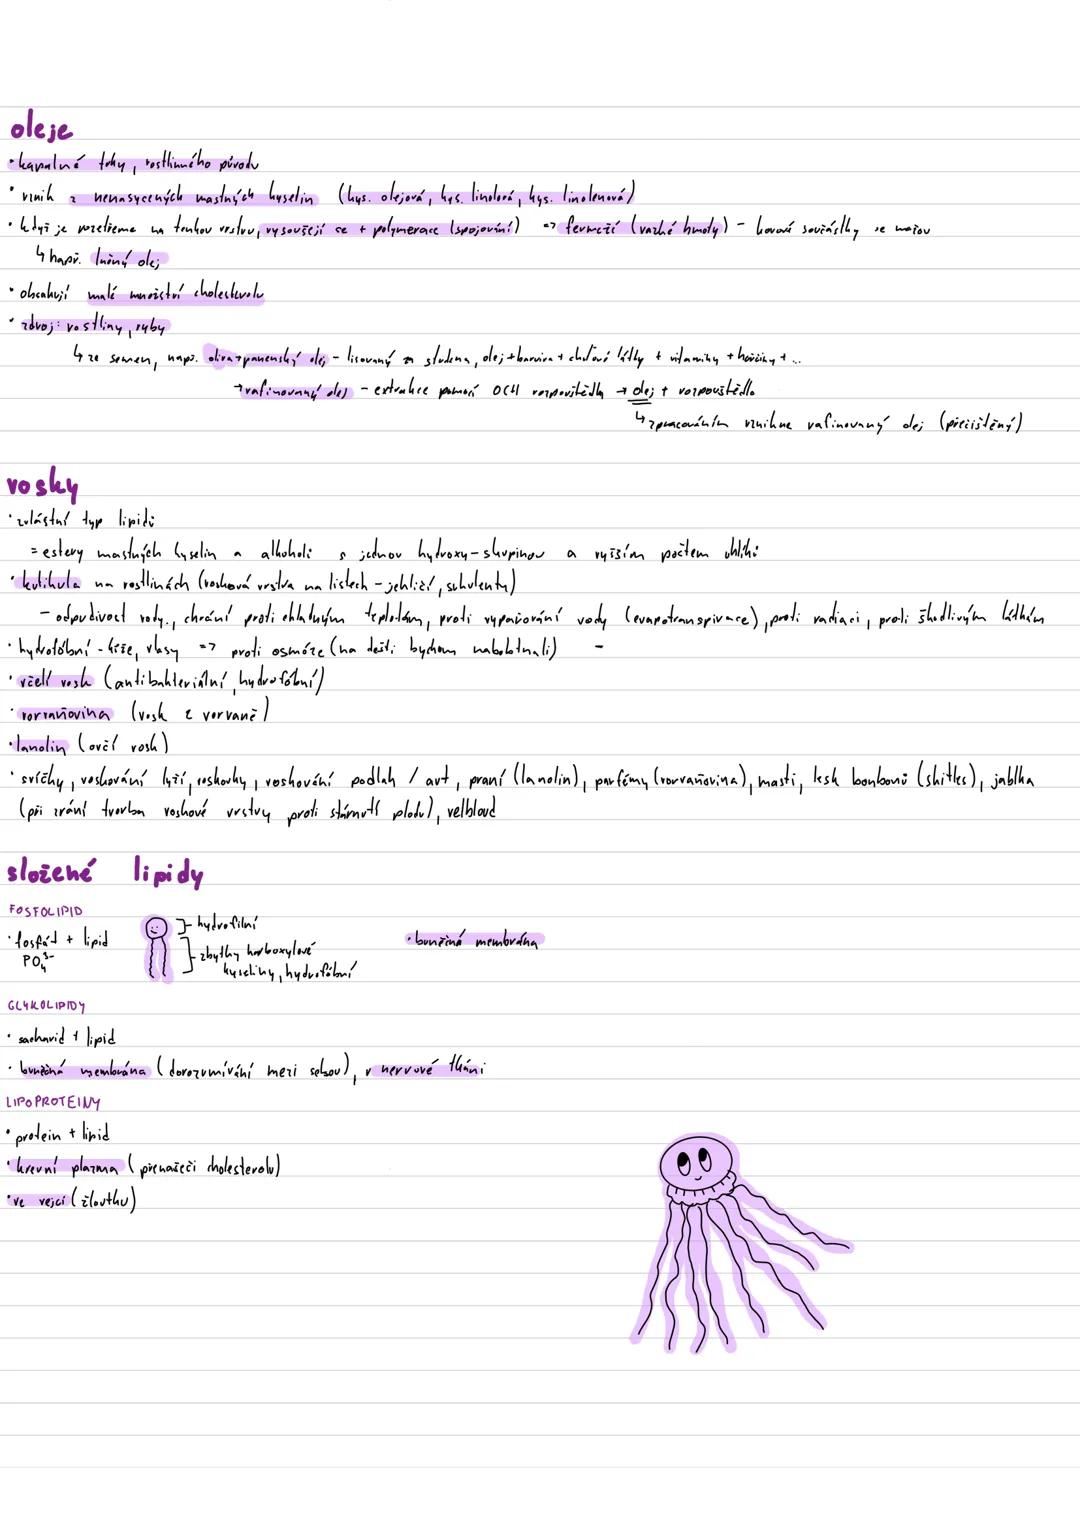 oleje
• kapalné tuky, rostlinného původu
• vznik z nenasycených mastných kyselin (kys. olejová, kys. linolová, kys. linolenová)
• když je rozetřeme na tenkou vrstvu, vysoušejí se + polymerace (spojování) => fermeží (vazké hmoty) – kovové součástky se mažou
↳ např. lněný olej
• obsahují malé množství cholesterolu
• zdroj: rostliny, ryby
↳ ze semen, např. oliva → panenský olej – lisovaný za studena, olej + barviva + chuťové látky + vitaminy + hořčiny + ...
→ rafinovaný olej – extrakce pomocí OCH rozpouštědla → olej + rozpouštědlo
↳ zpracováním vznikne rafinovaný olej (přečištěný)
vosky
• zvláštní typ lipidů
= estery mastných kyselin a alkoholů s jednou hydroxy-skupinou a vyšším počtem uhlíků
• kutikula na rostlinách (vosková vrstva na listech – jehličí, sukulenty)
– odpudivost vody, chrání proti chladným teplotám, proti vypařování vody (evapotranspirace), proti radiaci, proti škodlivým látkám
• hydrofóbní – kůže, vlasy => proti osmóze (na dešti bychom nabobtnali) –
• včelí vosk (antibakteriální, hydrofóbní)
• vorvaňovina (vosk z vorvaně)
• lanolin (ovčí vosk)
• svíčky, voskování lyží, voskovky, voskování podlah / aut, praní (lanolin), parfémy (vorvaňovina), masti, lesk bonbonů (skitles), jablka
(při zrání tvorba voskové vrstvy proti stárnutí plodu), velbloud
složené lipidy
FOSFOLIPID
• fosfát + lipid
PO₄³⁻
hydrofilní
zbytky karboxylové
kyseliny, hydrofóbní
• buněčná membrána
GLYKOLIPIDY
• sacharid + lipid
• buněčná membrána (dorozumívání mezi sebou), v nervové tkáni
LIPOPROTEINY
• protein + lipid
• krevní plazma (přenašeči cholesterolu)
• ve vejci (žloutku)